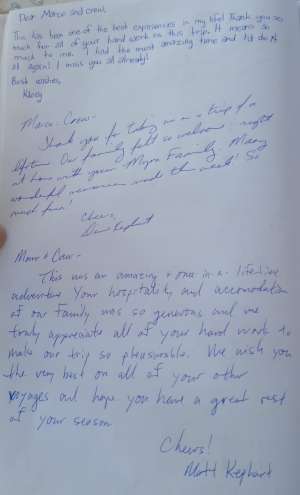 Dear Marco and crew,
This has been one of the best experiences in my life! Thank you so
much for all of your hard work on this trip. It means so
much to me. I had the most amazing time and I'd do it
all again! I miss you all already!
Best wishes,
Marco & Crew -
Thank you for taking us on a trip of a
lifetime. Our family felt so welcome & right
at home with your Family. Many
wonderful memories made this week! So
much fun!
Cheers,
Kephart
Marco & Crew -
This was an amazing & once-in-a-lifetime
adventure. Your hospitality and accomodation
of our family was so generous and we
truly appreciate all of your hard work to
make our trip so pleasurable. We wish you
the very best on all of your other
voyages and hope you have a great rest
of your season
Cheers!
Matt Kephart